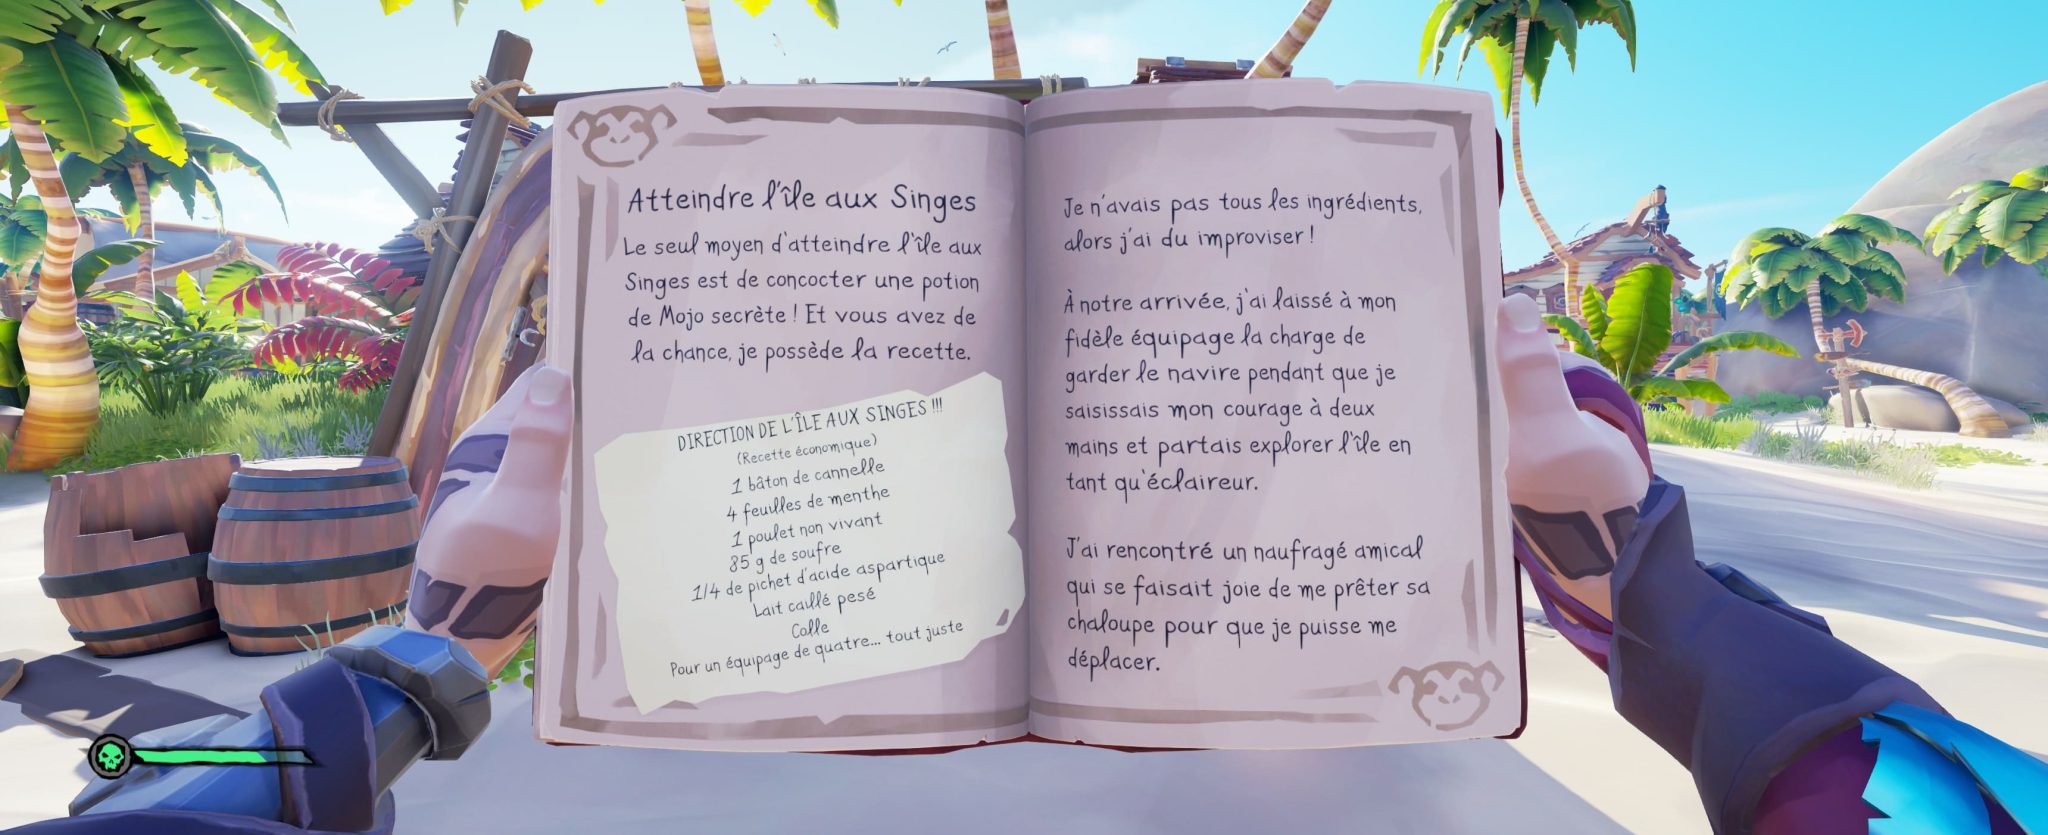 Atteindre l'île aux Singes
Le seul moyen d'atteindre l'île aux
Singes est de concocter une potion
de Mojo secrète ! Et vous avez de
la chance, je possède la recette.
DIRECTION DE L'ÎLE AUX SINGES !!!
(Recette économique)
1 bâton de cannelle
4 feuilles de menthe
1 poulet non vivant
85 g de soufre
1/4 de pichet d'acide aspartique
Lait caillé pesé
Colle
Pour un équipage de quatre... tout juste
Je n'avais pas tous les ingrédients,
alors j'ai du improviser !
À notre arrivée, j'ai laissé à mon
fidèle équipage la charge de
garder le navire pendant que je
saisissais mon courage à deux
mains et partais explorer l'île en
tant qu'éclaireur.
J'ai rencontré un naufragé amical
qui se faisait joie de me prêter sa
chaloupe pour que je puisse me
déplacer.